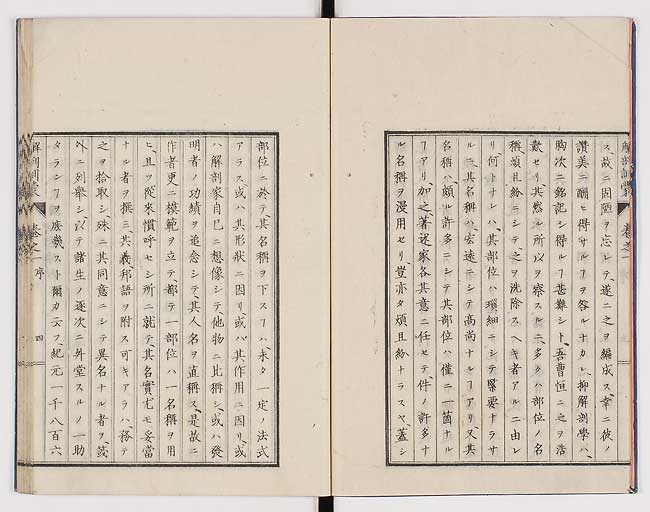 ス、故ニ固陋ヲ忘レテ、遂ニ之ヲ編成ス、幸ニ彼ノ
讃美ニ酬ヒ得サルヿヲ咎ルナカレ、抑解剖學ハ、
胸次ニ銘記シ得ルヿ甚難シト、吾曹恒ニ之ヲ浩
歎セリ其然ル所以ヲ察スルニ、多クハ部位ノ名
稱、煩且紛ニシテ、之ヲ洗除スヘキ者アルニ由レ
リ何トナレハ、其部位ハ瑣細ニシテ緊要ナラサ
ルニ、其名稱ハ、宏遠ニシテ高尚ナルヿアリ、又其
名稱ハ、頗ル許多ニシテ其部位ハ僅ニ一箇ナル
ヿアリ加之著述家各其意ニ任セテ、件ノ許多ナ
ル名稱ヲ漫用セリ、豈亦タ煩且紛ナラスヤ、蓋シ
部位ニ於テ、其名稱ヲ下スヿハ、未タ一定ノ法式
アラス或ハ其形狀ニ因リ或ハ其作用ニ因リ、或
ハ解剖家自己ニ想像シテ、他物ニ比稱シ、或ハ發
明者ノ功績ヲ追念シテ、其人名ヲ直稱ス、是故ニ
作者更ニ模範ヲ立テ、都テ一部位ハ一名稱ヲ用
ヒ、且ツ從來慣呼セシ所ニ就テ、其名實尤モ妥當
ナル者ヲ撰ミ、其義邦語ヲ附ス可キアラハ、務テ
之ヲ拾取シ、殊ニ其同意ニシテ異名ナル者ヲ、筴
外ニ列擧シ、以テ諸生ノ逐次ニ升堂スルノ一助
タランヿヲ庶幾スト爾カ云フ、起元一千八百六
解剖訓蒙
卷之一
序
四